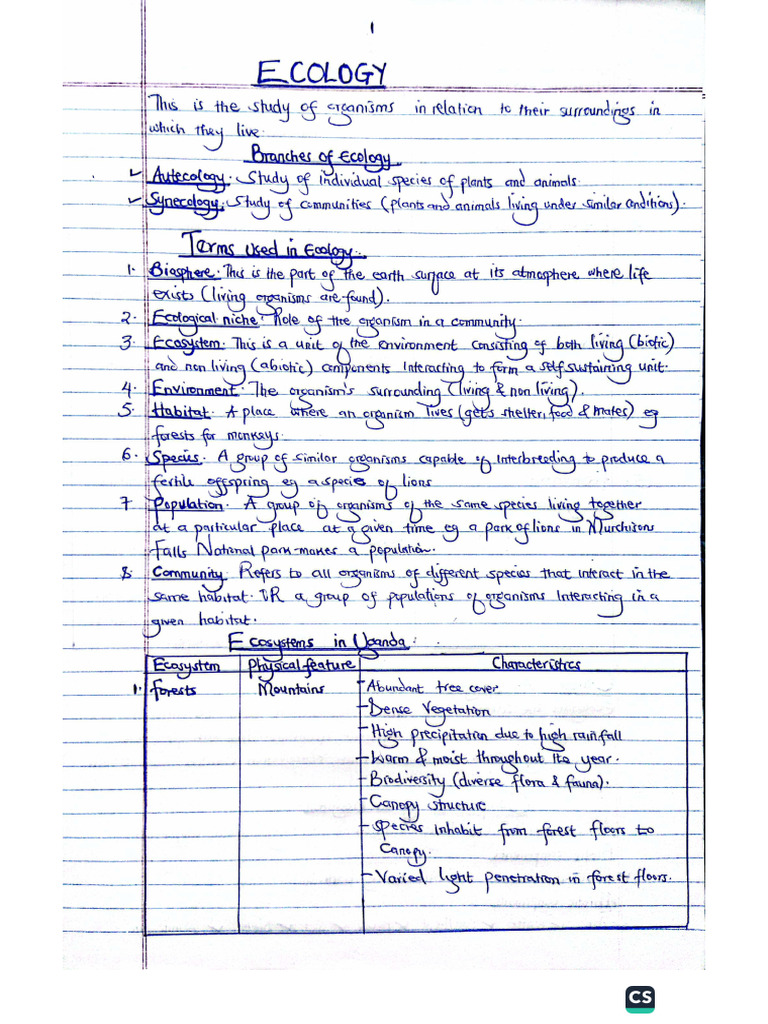 1
ECOLOGY
This is the study of organisms in relation to their surroundings in
which they live.
Branches of Ecology.
✓ Autecology. Study of individual species of plants and animals.
✓ Synecology. Study of communities (plants and animals living under similar conditions).
Terms used in Ecology.
1. Biosphere. This is the part of the earth surface at its atmosphere where life
exists (living organisms are found).
2. Ecological niche: Role of the organism in a community.
3. Ecosystem: This is a unit of the environment consisting of both living (biotic)
and non living (abiotic) components interacting to form a self sustaining unit.
4. Environment. The organism's surrounding (living & non living).
5. Habitat. A place where an organism lives (gets shelter, food & mates) eg
forests for monkeys.
6. Species. A group of similar organisms capable of interbreeding to produce a
fertile offspring eg a species of lions
7 Population. A group of organisms of the same species living together
at a particular place at a given time eg a park of lions in Murchizons
Falls National park makes a population.
8. Community. Refers to all organisms of different species that interact in the
same habitat. OR a group of populations of organisms interacting in a
given habitat.
Ecosystems in Uganda.
Ecosystem Physical feature Characteristics
1. forests Mountains - Abundant tree cover
- Dense Vegetation
- High precipitation due to high rainfall
- Warm & moist throughout the year.
- Biodiversity (diverse flora & fauna).
- Canopy structure
- Species inhabit from forest floors to
Canopy.
- Varied light penetration in forest floors.
CS